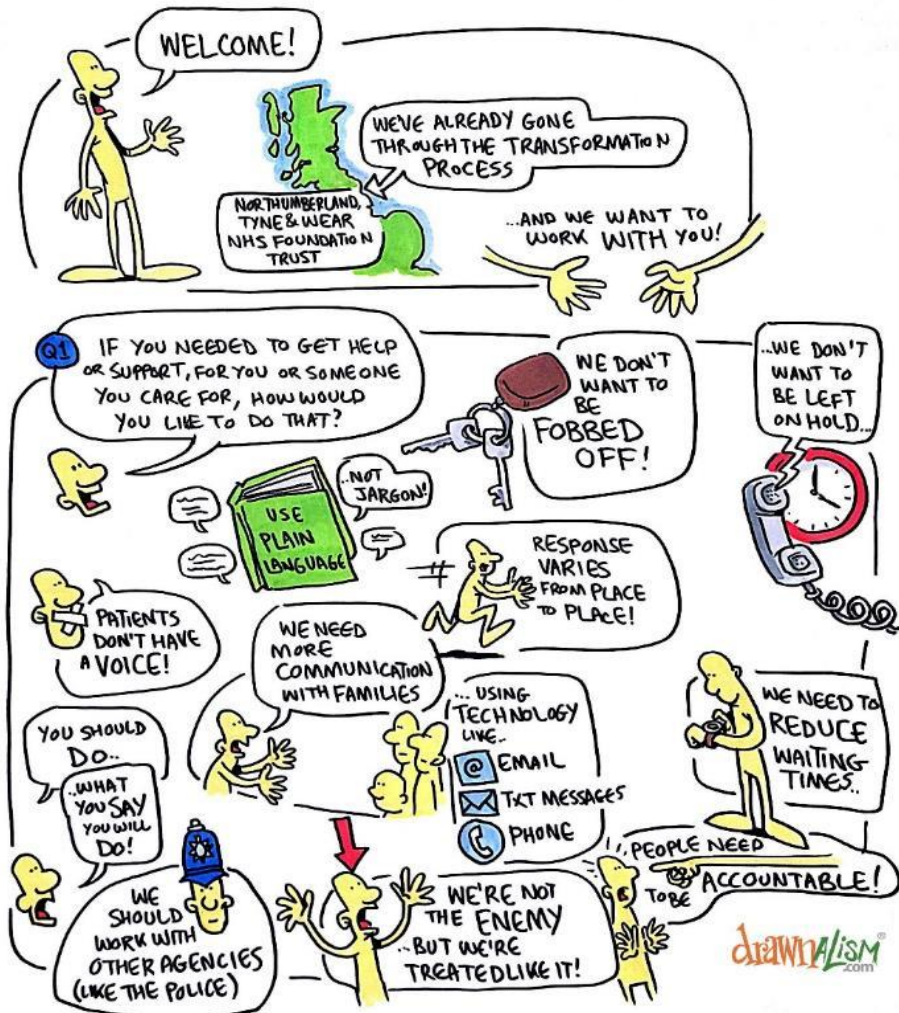 WELCOME!
WE'VE ALREADY GONE
THROUGH THE TRANSFORMATION
PROCESS
NORTHUMBERLAND,
TYNE & WEAR
NHS FOUNDATION
TRUST
...AND WE WANT TO
WORK WITH YOU!
Q1
IF YOU NEEDED TO GET HELP
OR SUPPORT, FOR YOU OR SOMEONE
YOU CARE FOR, HOW WOULD
YOU LIKE TO DO THAT?
WE DON'T
WANT TO
BE
FOBBED
OFF!
...WE DON'T
WANT TO
BE LEFT
ON HOLD...
USE
PLAIN
LANGUAGE
...NOT
JARGON!
RESPONSE
VARIES
FROM PLACE
TO PLACE!
PATIENTS
DON'T HAVE
A VOICE!
WE NEED
MORE
COMMUNICATION
WITH FAMILIES
... USING
TECHNOLOGY
LIKE..
@ EMAIL
TXT MESSAGES
PHONE
WE NEED TO
REDUCE
WAITING
TIMES..
YOU SHOULD
DO..
..WHAT
YOU SAY
YOU WILL
DO!
WE
SHOULD
WORK WITH
OTHER AGENCIES
(LIKE THE POLICE)
WE'RE NOT
THE ENEMY
...BUT WE'RE
TREATED LIKE IT!
PEOPLE NEED
TO BE
ACCOUNTABLE!
drawnALISM®
.com